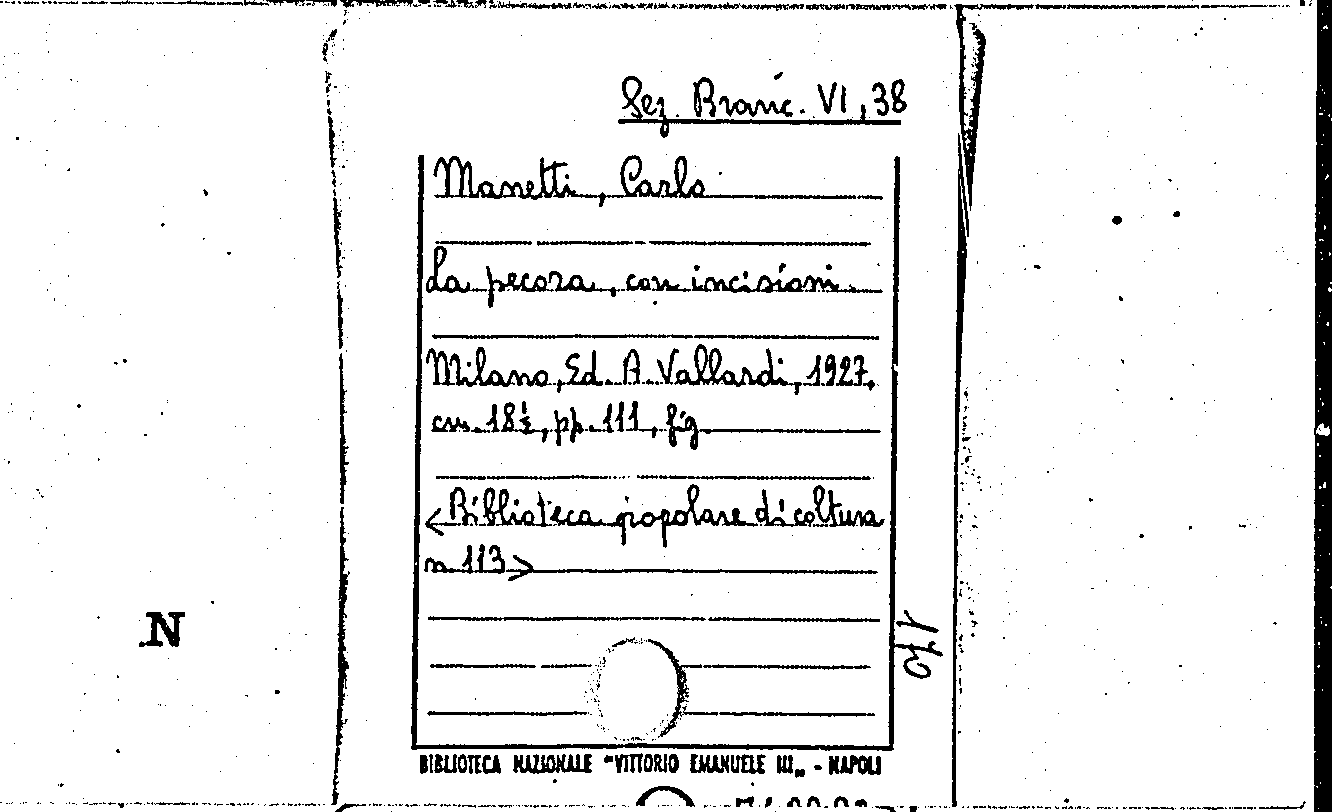 Sez. Branc. VI, 38
Manetti, Carlo
La pecora, con incisioni.
Milano, Ed. A. Vallardi, 1927.
cm. 18½, pp. 111, fig.
<Biblioteca popolare di coltura
n. 113>
N
BIBLIOTECA NAZIONALE "VITTORIO EMANUELE III„ - NAPOLI